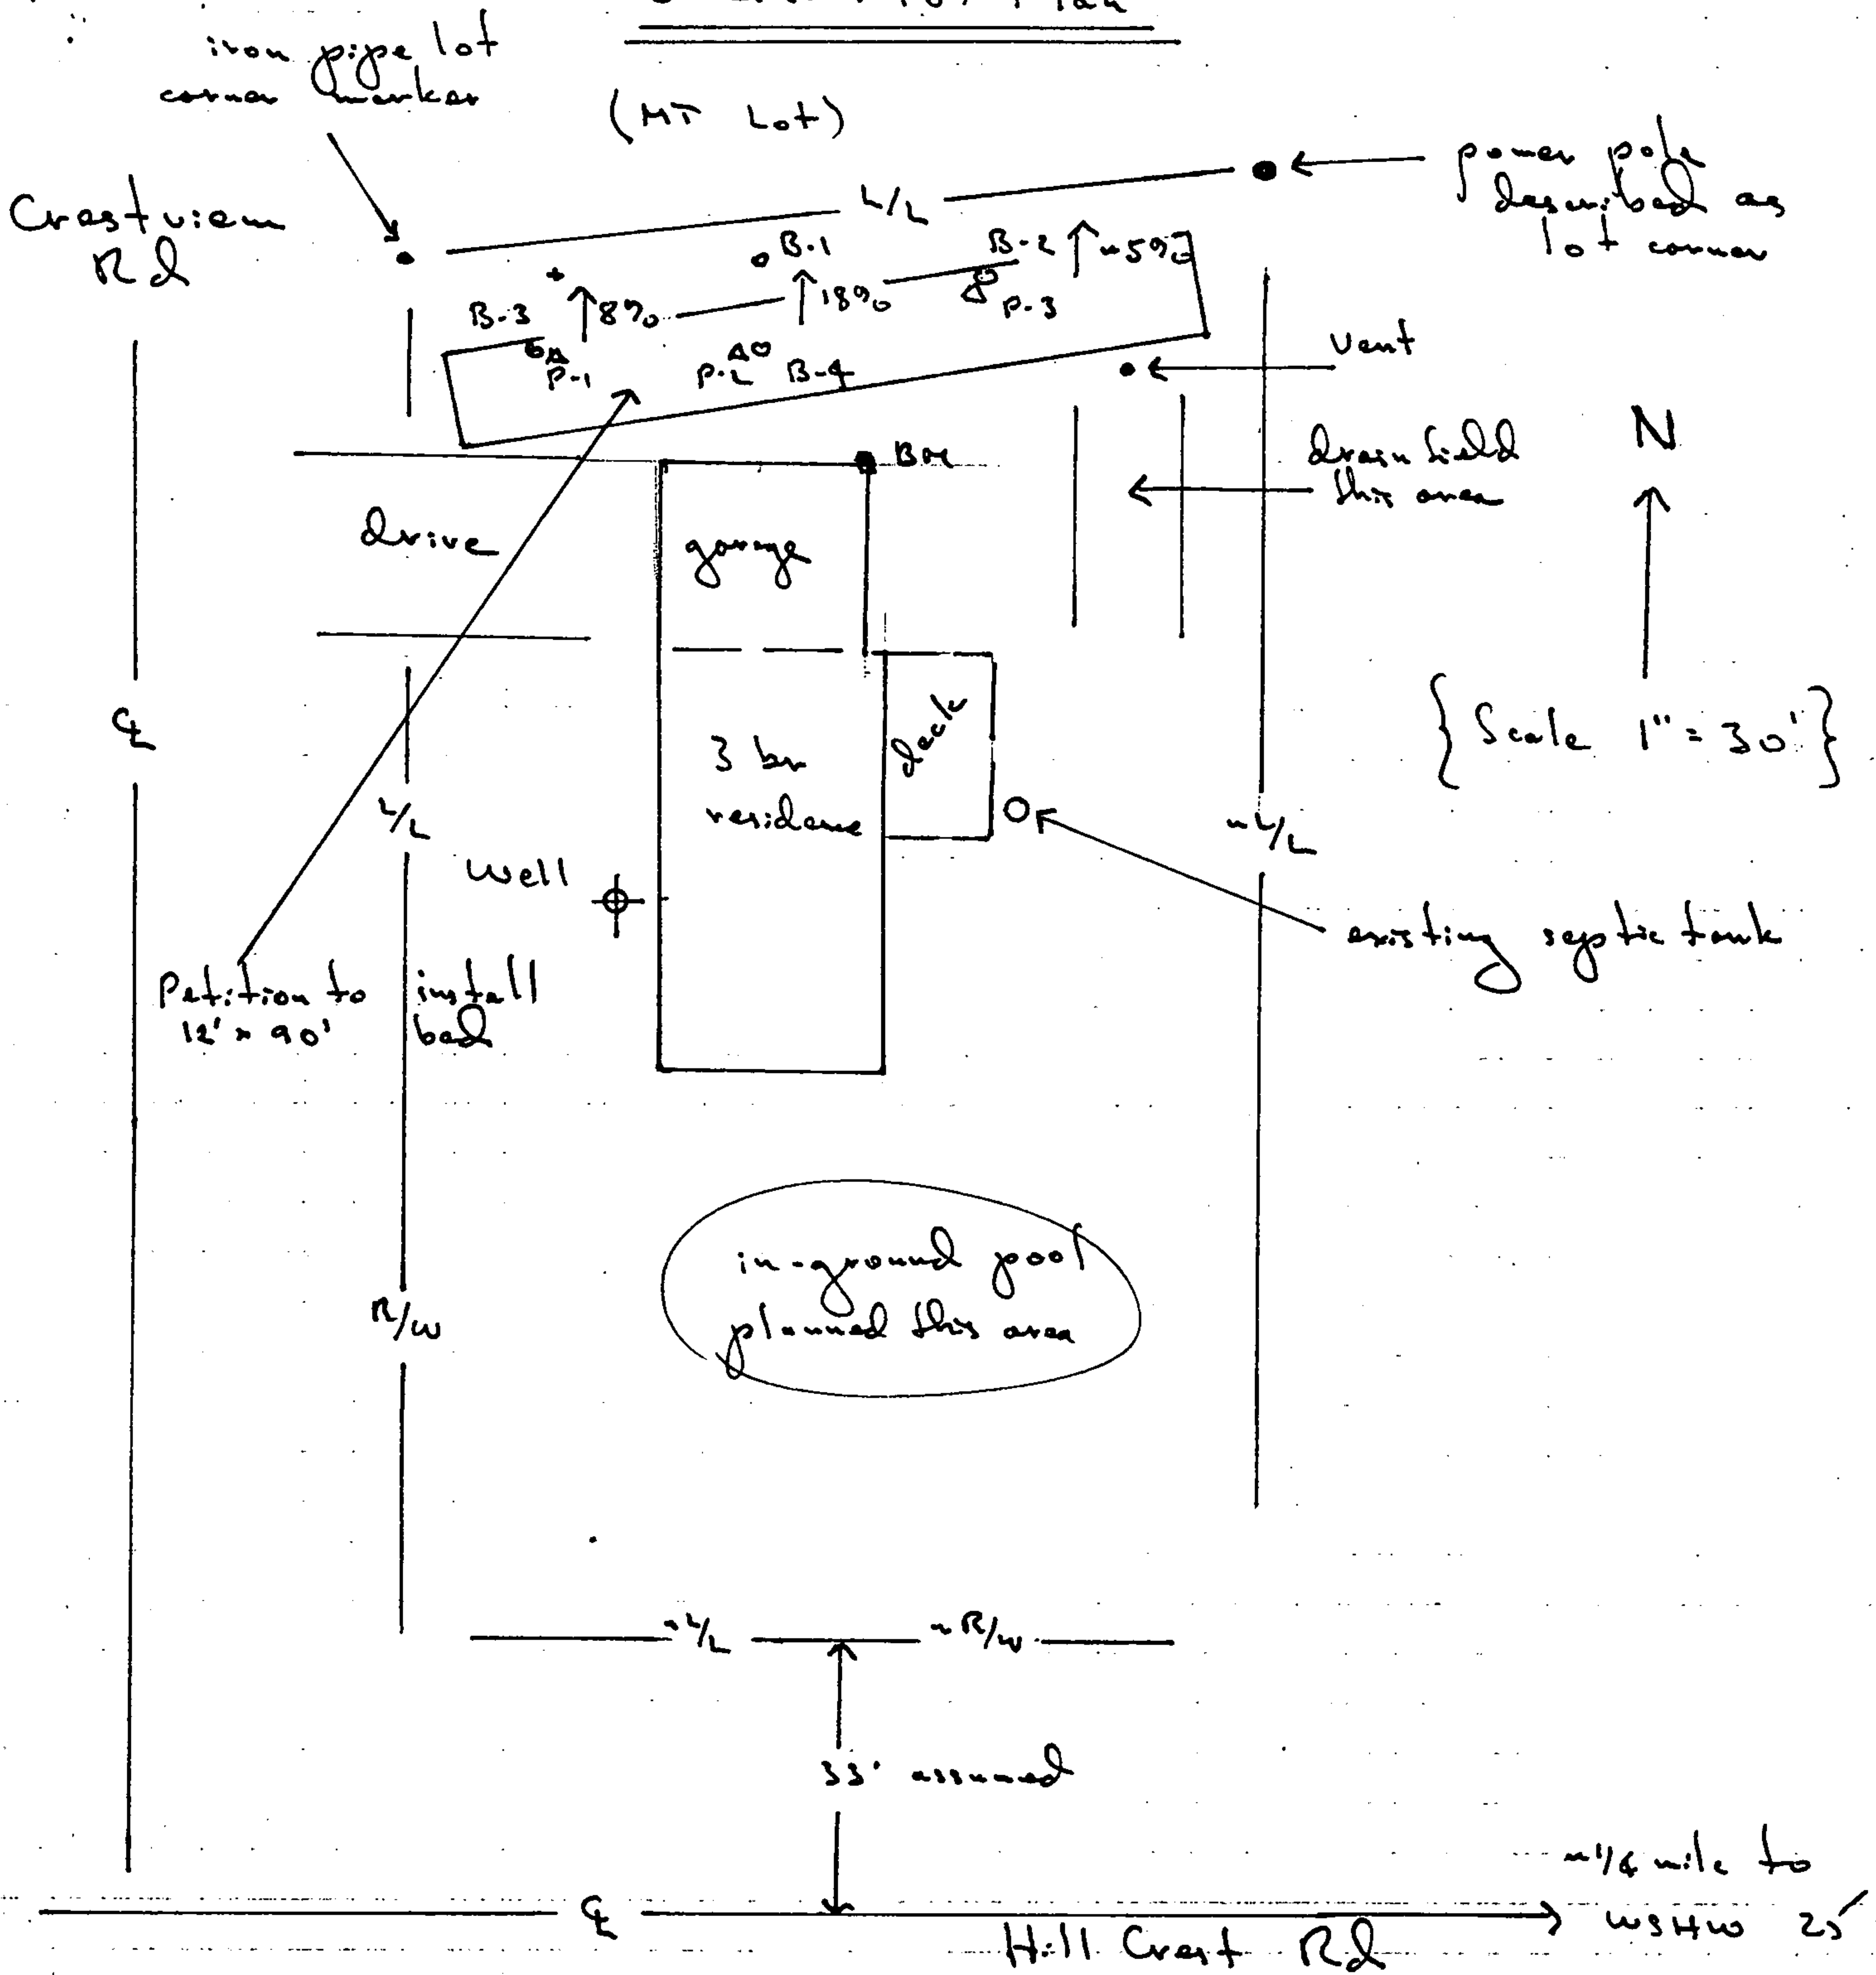 Plot Plan
iron pipe lot
corner marker
(MT Lot)
power pole
described as
lot corner
Crestview
Rd
L/L
B-1
B-2
~5%
B-3
8%
18%
P-3
P-1
P-2 B-4
Vent
BM
drain field
this area
N
drive
garage
deck
{Scale 1" = 30'}
℄
3 br
residence
L/L
~L/L
Well
existing septic tank
Petition to install
12' x 90' bed
in-ground pool
planned this area
R/W
~L/L
~R/W
33' assumed
~1/4 mile to
WSHW 25
℄
Hill Crest Rd